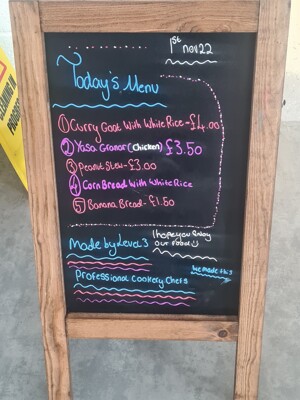 1st
nov22
Today's Menu
① Curry Goat With White Rice - £4.00
② Yasa Granar (Chicken) £3.50
③ Peanut Stew - £3.00
④ Corn Bread With White Rice
⑤ Banana Bread - £1.50
Made by Level 3
I hope you enjoy
our food
we made this
Professional Cookery Chefs